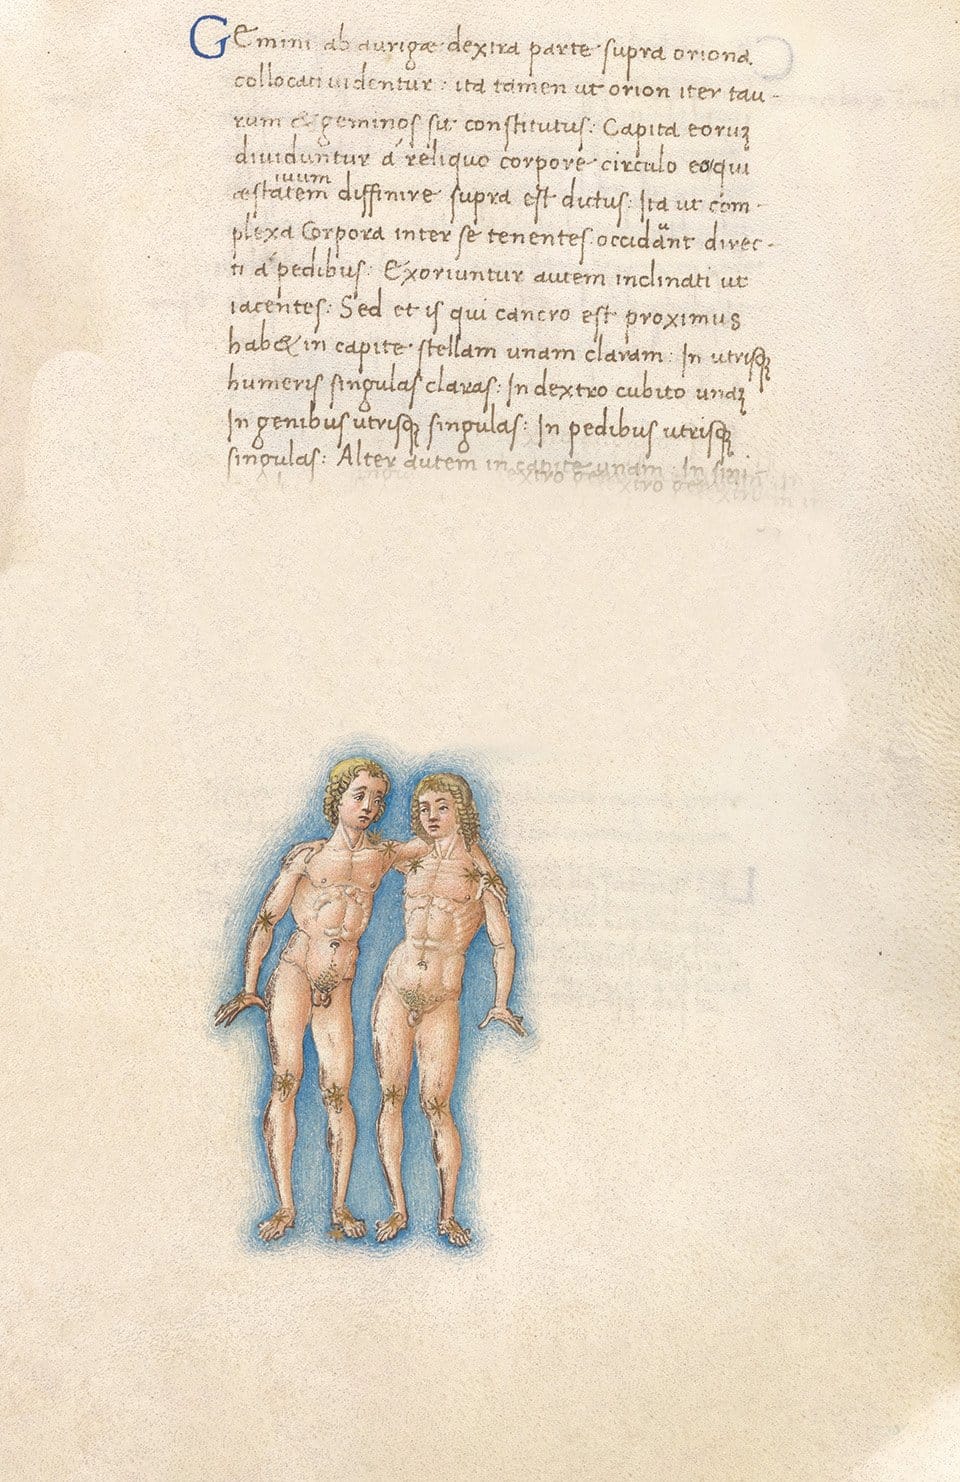 GEmini ab aurigæ dextra parte supra oriona
collocati uidentur: ita tamen ut orion iter tau-
rum & geminos sit constitutus: Capita eoruȝ
diuiduntur á reliquo corpore circulo eo qui
iuum
æstatem diffinire supra est dictus: Ita ut com-
plexa Corpora inter se tenentes occidant direc-
ti á pedibus: Exoriuntur autem inclinati ut
iacentes: Sed et is qui cancro est proximus
hab& in capite stellam unam claram: In utrisqꝫ
humeris singulas claras: In dextro cubito unaȝ
In genibus utrisqꝫ singulas: In pedibus utrisqꝫ
singulas: Alter autem in capite unam: In sini